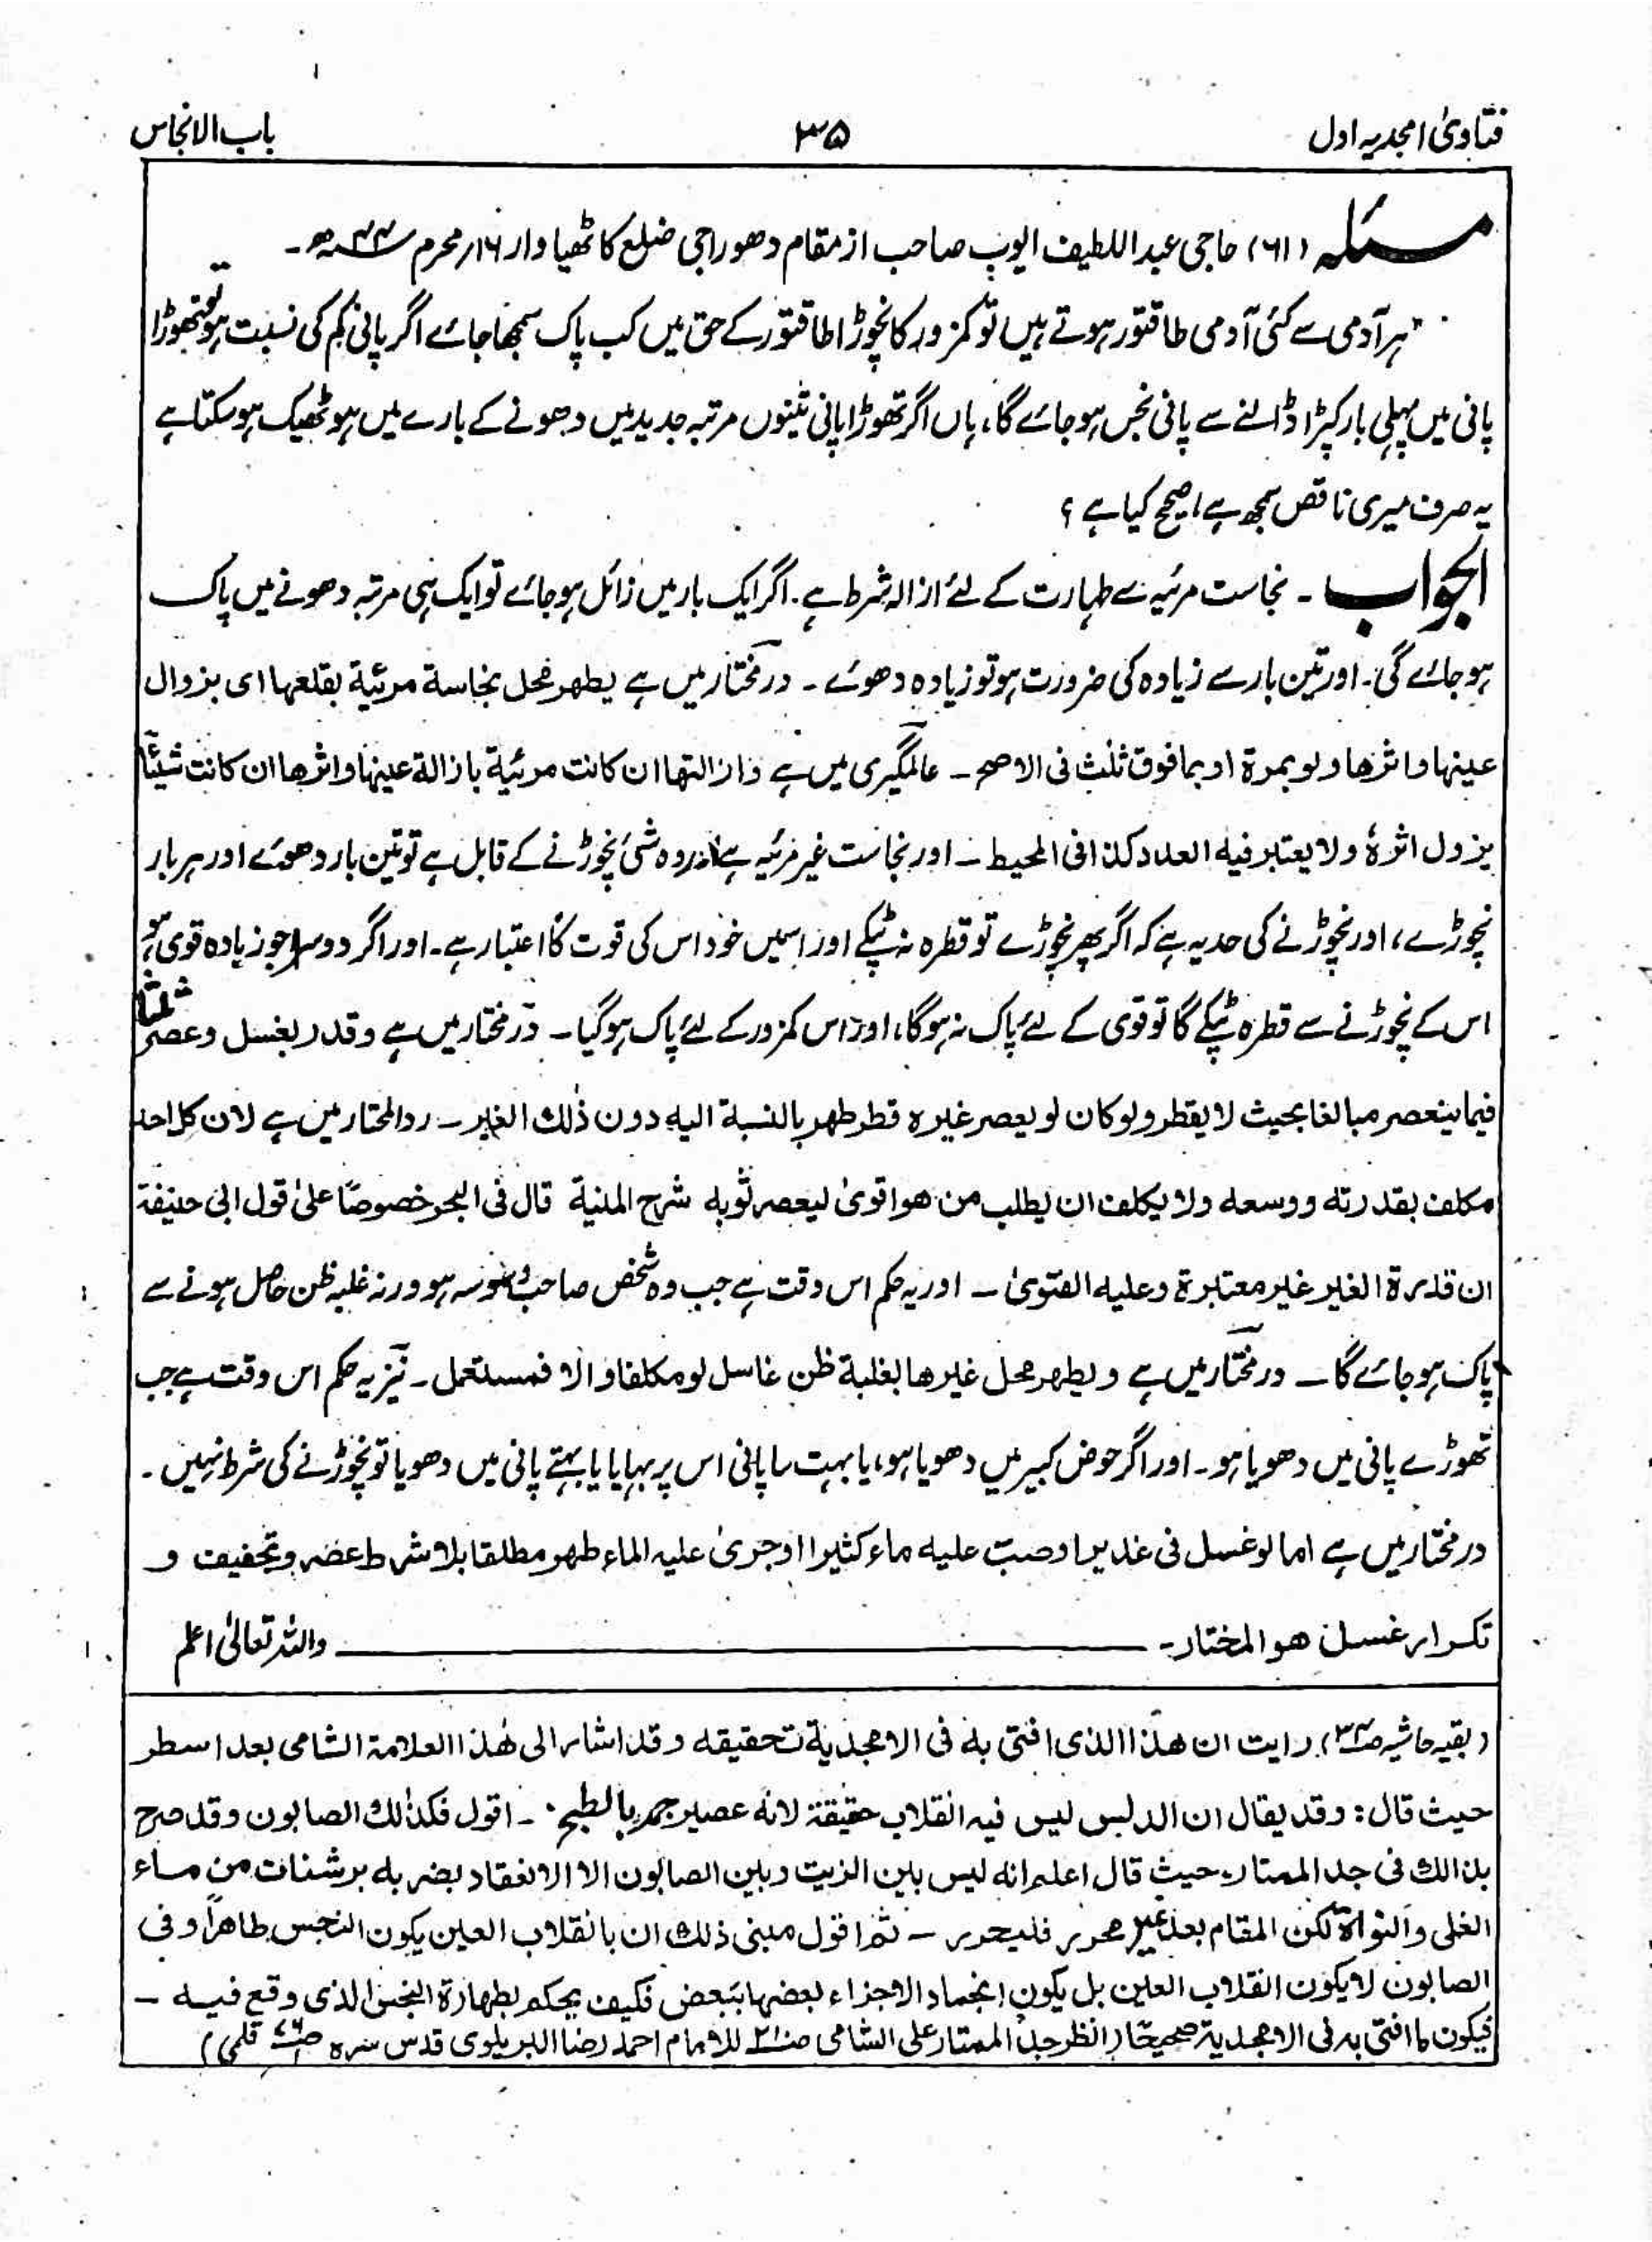 فتاویٰ امجدیہ اول
۳۵
باب الانجاس
مسئلہ (۶۱) حاجی عبد اللطیف ایوب صاحب از مقام دھوراجی ضلع کاٹھیاوار ۱۶ر محرم ۴۴ھ۔
ہر آدمی سے کئی آدمی طاقتور ہوتے ہیں تو کمزور کا نچوڑا طاقتور کے حق میں کب پاک سمجھا جائے اگر پانی کم کی نسبت ہو تو تھوڑا
پانی میں پہلی بار کپڑا ڈالنے سے پانی نجس ہو جائے گا، ہاں اگر تھوڑا پانی تینوں مرتبہ جدید میں دھونے کے بارے میں ہو ٹھیک ہو سکتا ہے
یہ صرف میری ناقص سمجھ ہے اصح کیا ہے ؟
الجواب ۔ نجاست مرئیہ سے طہارت کے لئے ازالہ شرط ہے۔ اگر ایک بار میں زائل ہو جائے تو ایک ہی مرتبہ دھونے میں پاک
ہو جائے گی۔ اور تین بار سے زیادہ کی ضرورت ہو تو زیادہ دھوئے ۔ درمختار میں ہے یطهر محل نجاسة مرئیة بقلعها ای بزوال
عینها واثرها ولو بمرة او بما فوق ثلٰث فی الاصح ۔ عالمگیری میں ہے وازالتها ان کانت مرئیة بازالة عینها واثرها ان کانت شیئًا
یزول اثرهٗ ولا یعتبر فیه العدد کذا فی المحیط ۔ اور نجاست غیر مرئیہ ہے اور وہ شئ نچوڑنے کے قابل ہے تو تین بار دھوئے اور ہر بار
نچوڑے، اور نچوڑنے کی حد یہ ہے کہ اگر پھر نچوڑے تو قطرہ نہ ٹپکے اور اسمیں خود اس کی قوت کا اعتبار ہے۔ اور اگر دوسرا جو زیادہ قوی ہو
اس کے نچوڑنے سے قطرہ ٹپکے گا تو قوی کے لئے پاک نہ ہوگا، اور اس کمزور کے لئے پاک ہوگیا ۔ درمختار میں ہے وقدر بغسل وعصر ثلٰثا
فیما ینعصر مبالغا بحیث لا یقطر ولو کان لو یعصر غیره قطر طهر بالنسبة الیه دون ذٰلک الغیر ۔ ردالمحتار میں ہے لان کل احد
مکلف بقدرته ووسعه ولا یکلف ان یطلب من هو اقویٰ لیعصر ثوبه شرح المنیة قال فی البحر خصوصًا علیٰ قول ابی حنیفة
ان قدرة الغیر غیر معتبرة وعلیه الفتویٰ ۔ اور یہ حکم اس وقت ہے جب وہ شخص صاحب وسوسہ ہو ورنہ غلبہ ظن حاصل ہونے سے
پاک ہو جائے گا ۔ درمختار میں ہے ویطهر محل غیرها بغلبة ظن غاسل لو مکلفا والا فمستعمل ۔ نیز یہ حکم اس وقت ہے جب
تھوڑے پانی میں دھویا ہو۔ اور اگر حوض کبیر میں دھویا ہو، یا بہت سا پانی اس پر بہایا یا بہتے پانی میں دھویا تو نچوڑنے کی شرط نہیں۔
درمختار میں ہے اما لو غسل فی غدیر او صب علیه ماء کثیرا او جریٰ علیه الماء طهر مطلقا بلا شرط عصر وتجفیف و
تکرار غسل هو المختار۔ واللہ تعالیٰ اعلم
(بقیہ حاشیہ ص۳۴) رایت ان هذا الذی افتی به فی الامجدیة تحقیقه وقد اشار الی هٰذا العلامة الشامی بعد اسطر
حیث قال: وقد یقال ان الدبس لیس فیه انقلاب حقیقة لانه عصیر جمد بالطبخ ۔ اقول فکذٰلک الصابون وقد صرح
بذالک فی جد الممتار حیث قال اعلم انه لیس بین الزیت وبین الصابون الا الانعقاد بضربه برشنات من ماء
الغلی والنواة لکن المقام بعد غیر محرر فلیحرر ۔ ثم اقول مبنی ذلک ان بانقلاب العین یکون النجس طاهراً وفی
الصابون لا یکون انقلاب العین بل یکون انجماد الاجزاء بعضها ببعض فکیف یحکم بطهارة النجس الذی وقع فیه ۔
فیکون ما افتی به فی الامجدیة صحیحًا (انظر جد الممتار علی الشامی للامام احمد رضا البریلوی قدس سره قلمی)